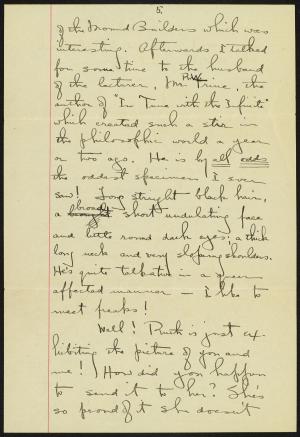 5.
of the Mound Builders which was
interesting. Afterwards I talked
for some time to the husband
of the lecturer, Mr R.W. Trine, the
author of "In Tune with the Infinite"
which created such a stir in
the philosophic world a year
or two ago. He is by all odds
the oddest specimen I ever
saw! Long straight black hair,
a broad short undulating face
and little round dark eyes: a thick
long neck and very sloping shoulders.
He's quite talkative in a queer
affected manner – I like to
meet freaks!
Well! Ruth is just ex-
hibiting the picture of you and
me! How did you happen
to send it to her? She's
so proud of it she doesn't